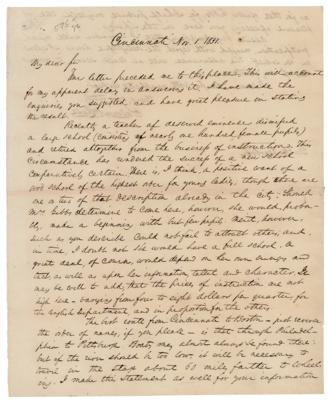 Cincinnati Nov. 1. 1831.
My dear Sir,
Your letter preceded me to this place. This will account
for my apparent delay in answering it. I have made the
enquiries you suggested and have great pleasure in stating
the result.
Recently a teacher of deserved eminence dismissed
a large school (consisting of nearly one hundred female pupils)
and retired altogether from the business of instruction. This
circumstance has rendered the success of a new school
comparatively certain. There is, I think, a positive want of a
good school of the highest order for young ladies, though there are
one or two of that description already in the city. Should
Mrs Gibbs determine to come here, however, she would, proba-
bly, make a beginning with but few pupils. Merit, however,
such as you describe could not fail to attract others, and,
in time, I doubt not she would have a full school. A
great deal, of course, would depend on her own energy and
tact, as well as upon her information, talent and character. It
may be well to add, that the prices of instruction are not
high here - varying from four to eight dollars per quarter, for
the English department and in proportion for the others.
The best route from Cincinnati to Boston - just reverse
the order of names, if you please - is that through Philadel-
phia to Pittsburgh. Boats may almost always be found there:
but if the river should be too low, it will be necessary to
travel in the stage about 60 miles farther to Wheel-
ing. I make the statement as well for your information